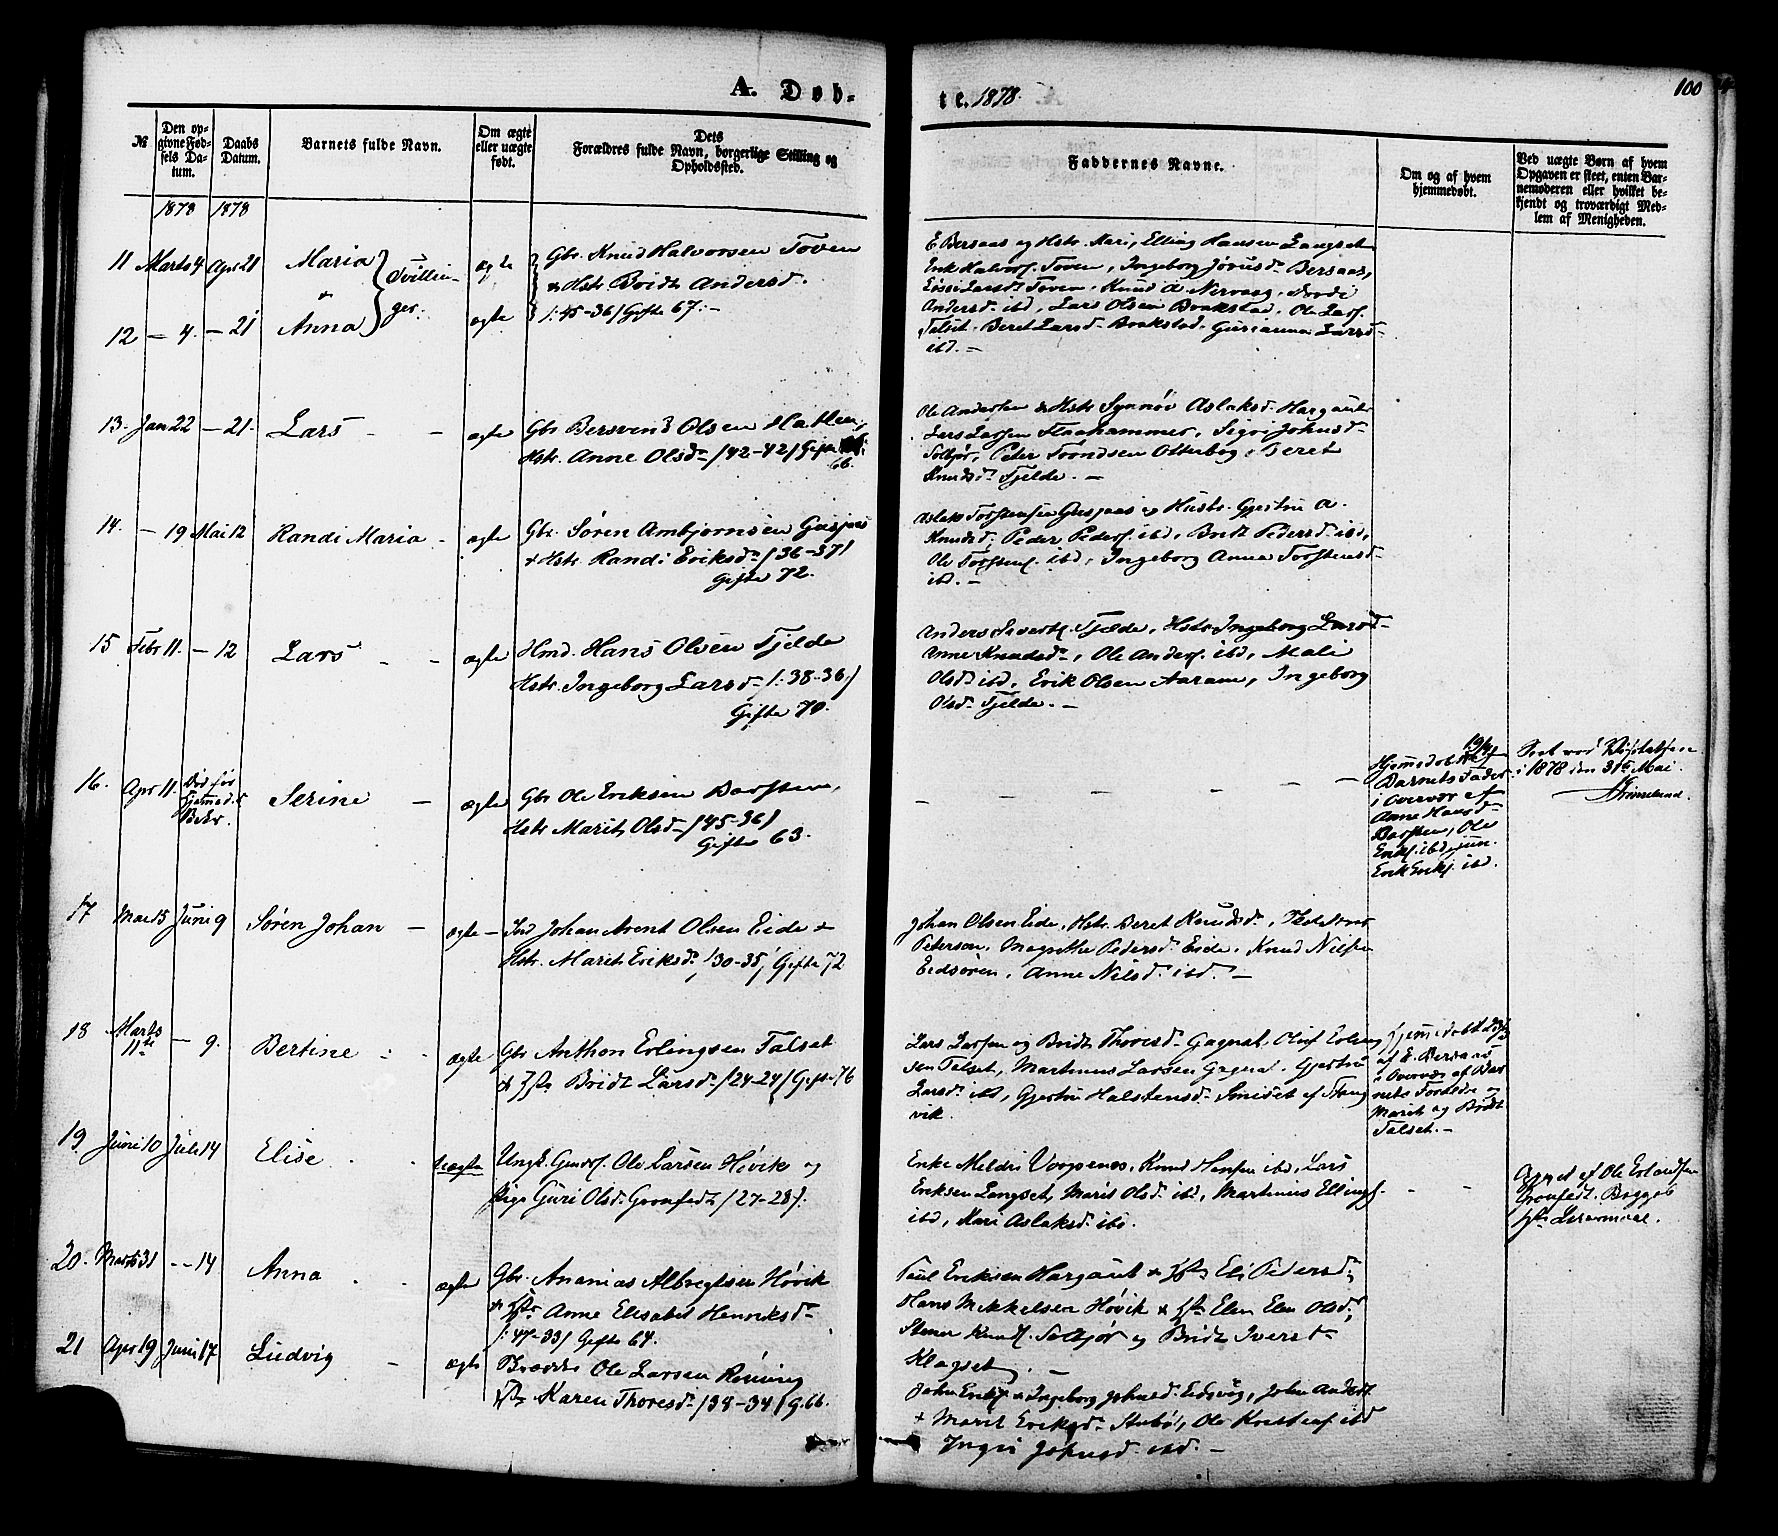 A. Døb-
te. 1878.
100
№
Den opgivne Fødsels Datum.
Daabs Datum.
Barnets fulde Navn.
Om ægte eller uægte født.
Dets Forældres fulde Navn, borgerlige Stilling og Opholdssted.
Faddernes Navne.
Om og af hvem hjemmedøbt.
Ved uægte Børn af hvem Opgaven er skeet, enten Barnemoderen eller hvilket bekjendt og troværdigt Medlem af Menigheden.
1878 1878
11 Marts 4 Apr 21 Maria } Tvillin- ægte
+ ger.
12 — 4. — 21 Anna ægte
Gbr. Knud Halvorsen Toven
& Hstr Bridt Andersd.
/:45-36/ Gifte 67:-
E Bersaas og Hstr. Mari, Elling Hansen Langset
Erik Halvors. Toven, Ingeborg Bersaas,
Larsd. Toven, Knud A Nervaag,
Andersd ibd, Lars Olsen Brakstad, Ole Lars.
Talset. Beret Larsd. Brakstad, Larsd
ibd. —
13. Jan 22 — 21. Lars - - ægte
Gbr Bersvend Olsen Hatlen,
Hstr. Anne Olsd. /42-42/ Gifte
66.
Ole Andersen & Hstr Synnøv Aslaksd. Hargaut
Lars Larssen Flaahammer, Sigri Johnsd.
Solbjør, Peter Trondsen Otterbog, Beret
Knudsd. Fjelde. —
14. — 19 Mai 12 Randi Maria - ægte
Gbr. Søren Arnbjørnsen Gusjaas
+ Hstr. Randi Eriksd. /36-37/
Gifte 72.
Aslak Torstensen Gusjaas og Hustr. Gjertru A.
Knudsd. Peder Peders. ibd, Bridt Pedersd ibd,
Ole Torstens. ibd, Ingeborg Anna Torstensd.
ibd. —
15 Febr 11. — 12 Lars - - ægte
Hmd. Hans Olsen Fjelde
Hstr. Ingeborg Larsd. /:38-36./
Gifte 70.
Anders Siverts. Fjelde, Hstr Ingeborg Larsd.
Anne Knudsd., Ole Anders. ibd, Mali
Olsd. ibd, Erik Olsen Aaram, Ingeborg
Olsd. Fjelde. —
16. Apr 11. Død før
Bekr.
Serine — ægte
Gbr Ole Eriksen Barsten,
Hstr Marit Olsd. /45-36/
Gifte 63.
— — — — — — —
Hjemmedøbt 12/4 af
Barnets Fader
i Overvær af
Anne Hansd.
Barsten, Ole
Eriks. ibd jun.
Erik Eriks. ibd.
Seet ved Visitatsen
i 1878 den 31te Mai.
17 Mar 15 Juni 9 Søren Johan — ægte —
Ind Johan Arent Olsen Eide +
Hstr. Marit Eriksd. /30-35/ Gifte 72
Johan Olsen Eide, Hstr. Beret Knudsd.,
Peterson, Magrethe Pedersd. Eide, Knud Nilsen
Eidsøren, Anne Nilsd. ibd. —
18 Marts
11te — 9. Bertine - - ægte
Gbr Anthon Erlingsen Talset
& Hstr Bridt Larsd. /24-24/ Gift 76
Lars Larsen og Bridt Thoresd. Gagnat, Oluf Erling
sen Talset, Martinus Larsen Gagnat. Gjertru
Larsd. ibd, Gjertru Halstensd. Smiset af Stang
vik.
Hjemmedøbt
af E. Bersaas
i Overvær af Bar
nets Forældre og
Marit og Bridt
Talset. —
19 Juni 10 Juli 14 Elise . . uægte
Ungk. Gmds. Ole Larsen Høvik og
Pige Guri Olsd. Gronfedt /27-28/.
Enke Meldri Vorpenes, Knud Hansen ibd, Lars
Eriksen Langset, Marit Olsd. ibd, Martinus Ellings.
ibd, Kari Aslaksd. ibd.
- -
Opgivet af Ole Erlandsen
Gronfedt.
20. Marts 31 -- 14 Anna . . ægte
Gbr. Ananias Albregtsen Høvik
& Hstr Anne Elisabet Henriksd.
/:47-33/ Gifte 64.
Paul Eriksen Hargaut & Hstr Eli Pedersd.,
Hans Mikkelsen Høvik & Hstr Elen Olsd.,
Stener Knuds. Solbjør og Bridt Iversd.
Klagset. —
21 Apr 19 Juni 17 Ludvig — ægte
Ole Larsen Røning
Hstr Karen Thoresd. /38-34/ G. 66.
John Eriks. & Ingeborg Johnsd. Eidsvåg, John Anders.
+ Marit Eriksd. Stubø, Ole Kristens. ibd
Ingri Johnsd. ibd. —